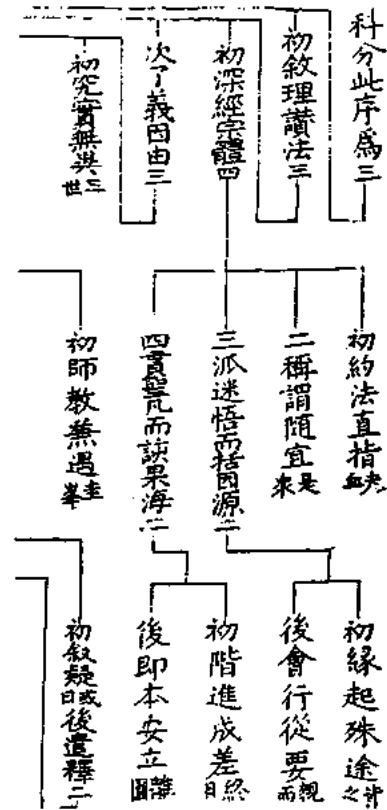 科分此序爲三
初敘理讚法三
初深經宗體四
次了義因由三
初究實無異三世
初約法直指夫血
二稱謂隨宜是來
三派迷悟而括因源二
四貫聖凡而談果海二
初師教無遇圭峯
初緣起殊途之
後會行從要觀而
初階進成差終日
後即本安立離圖
初敘疑或曰後遣釋二